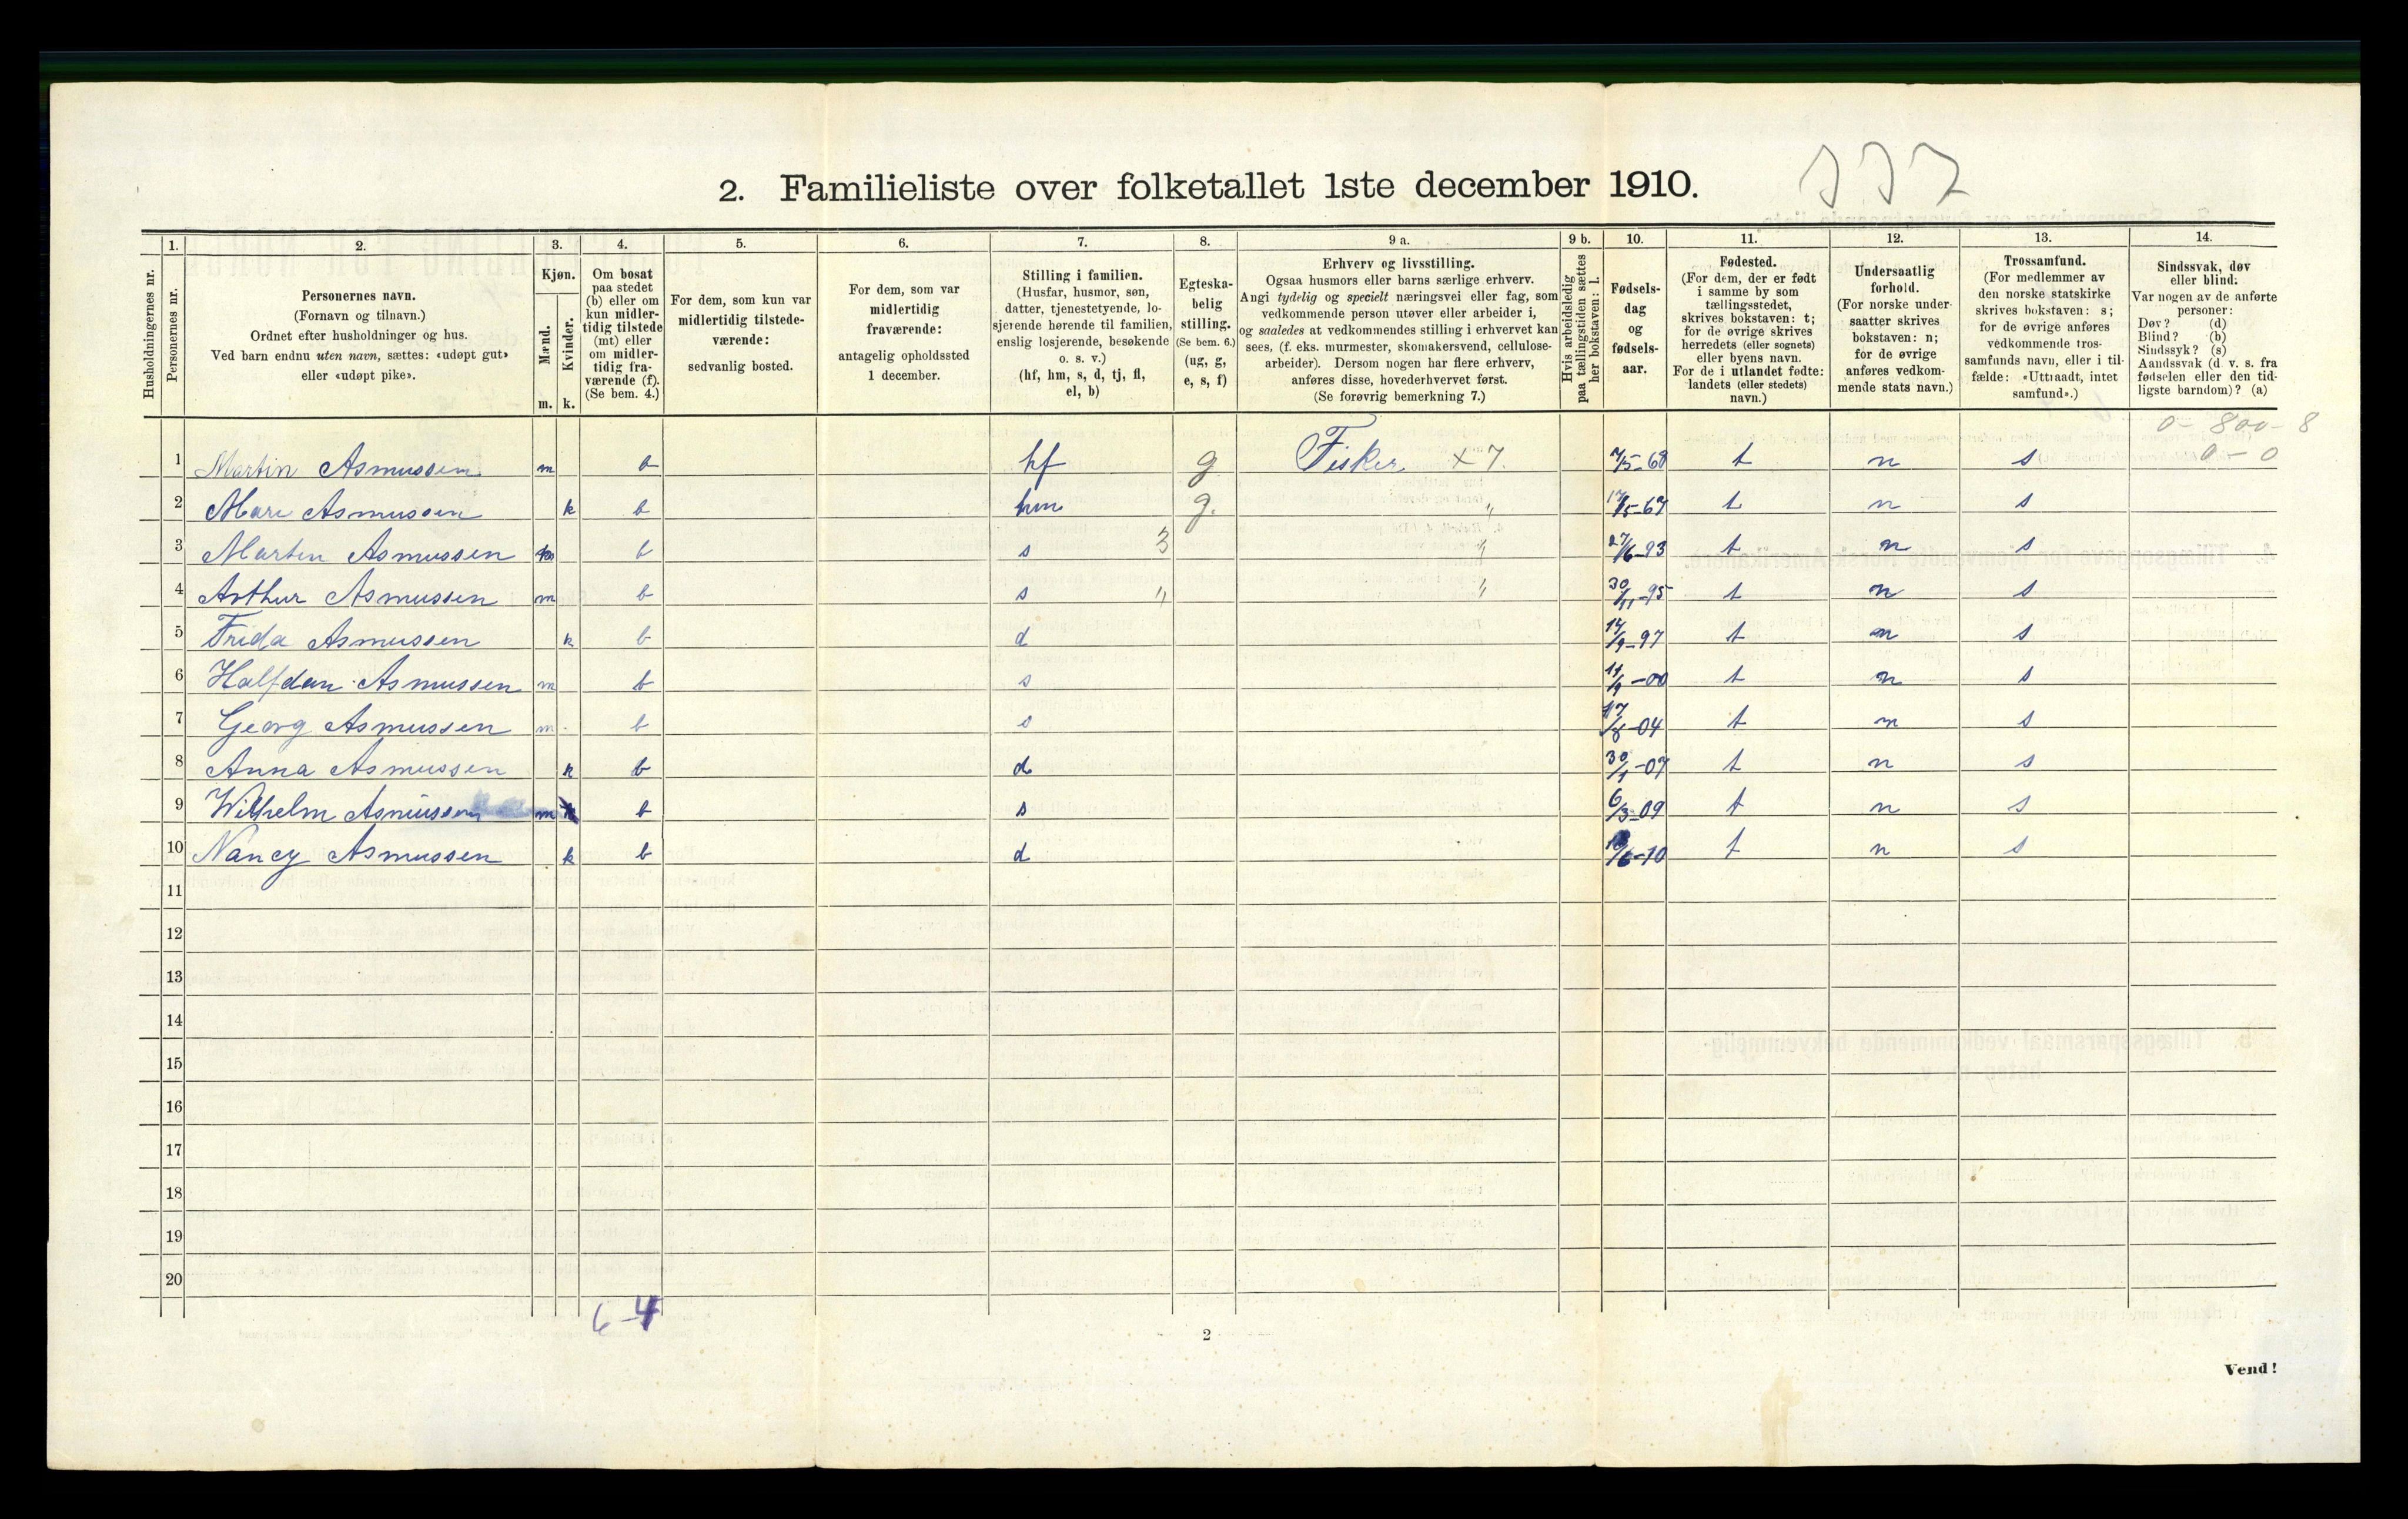 337
2. Familieliste over folketallet 1ste december 1910.
Husholdningernes nr.
1.
Personernes nr.
2.
Personernes navn.
(Fornavn og tilnavn.)
Ordnet efter husholdninger og hus.
Ved barn endnu uten navn, sættes: «udøpt gut»
eller «udøpt pike».
3.
Kjøn.
Mænd.
Kvinder.
m. k.
4.
Om bosat
paa stedet
(b) eller om
kun midler-
tidig tilstede
(mt) eller
om midler-
tidig fra-
værende (f).
(Se bem. 4.)
5.
For dem, som kun var
midlertidig tilstede-
værende:
sedvanlig bosted.
6.
For dem, som var
midlertidig
fraværende:
antagelig opholdssted
1 december.
7.
Stilling i familien.
(Husfar, husmor, søn,
datter, tjenestetyende, lo-
sjerende hørende til familien,
enslig losjerende, besøkende
o. s. v.)
(hf, hm, s, d, tj, fl,
el, b)
8.
Egteska-
belig
stilling.
(Se bem. 6.)
(ug, g,
e, s, f)
9 a.
Erhverv og livsstilling.
Ogsaa husmors eller barns særlige erhverv.
Angi tydelig og specielt næringsvei eller fag, som
vedkommende person utøver eller arbeider i,
og saaledes at vedkommendes stilling i erhvervet kan
sees, (f. eks. murmester, skomakersvend, cellulose-
arbeider). Dersom nogen har flere erhverv,
anføres disse, hovederhvervet først.
(Se forøvrig bemerkning 7.)
9 b.
Hvis arbeidsledig
paa tællingstiden sættes
her bokstaven: l.
10.
Fødsels-
dag
og
fødsels-
aar.
11.
Fødested.
(For dem, der er født
i samme by som
tællingsstedet,
skrives bokstaven: t;
for de øvrige skrives
herredets (eller sognets)
eller byens navn.
For de i utlandet fødte:
landets (eller stedets)
navn.)
12.
Undersaatlig
forhold.
(For norske under-
saatter skrives
bokstaven: n;
for de øvrige
anføres vedkom-
mende stats navn.)
13.
Trossamfund.
(For medlemmer av
den norske statskirke
skrives bokstaven: s;
for de øvrige anføres
vedkommende tros-
samfunds navn, eller i til-
fælde: «Uttraadt, intet
samfund».)
14.
Sindssvak, døv
eller blind.
Var nogen av de anførte
personer:
Døv? (d)
Blind? (b)
Sindssyk? (s)
Aandssvak (d. v. s. fra
fødselen eller den tid-
ligste barndom)? (a)
0 - 800 - 8
0 - 0
1 Martin Asmussen m b hf g Fisker x 7. 7/5-68 t n s
2 Mari Asmussen k b hm g. " 17/5-67 t n s
3 Martin Asmussen m b s 3 " 27/6-93 t n s
4 Arthur Asmussen m b s " " 30/11-95 t n s
5 Frida Asmussen k b d 14/9-97 t n s
6 Halfdan Asmussen m b s 11/9-00 t n s
7 Georg Asmussen m b s 17/8-04 t n s
8 Anna Asmussen k b d 30/1-07 t n s
9 Wilhelm Asmussen m b s 6/3-09 t n s
10 Nancy Asmussen k b d /6-10 t n s
11
12
13
14
15
16
17
18
19
20
6-4
2
Vend!